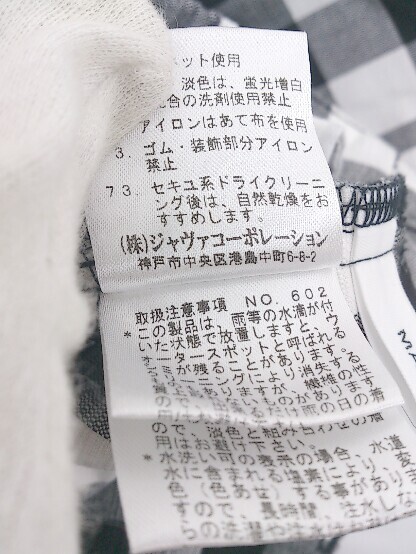 ネット使用
淡色は、蛍光増白
配合の洗剤使用禁止
アイロンはあて布を使用
3. ゴム・装飾部分アイロン
禁止
73. セキユ系ドライクリーニ
ング後は、自然乾燥をお
すすめします。
(株)ジャヴァコーポレーション
神戸市中央区港島中町6-8-2
取扱注意事項 NO. 602
*この製品は、雨等の水滴が付
いた状態で放置しますと、ウ
ォータースポットと呼ばれる
が残ることがあります。
ーニングにより消失する
ありますが、繊維の性
があります
だけ雨の日の着
用
の
淡色と組み
用はお避け下さい。
*水洗い可の表示の場合、水道
水に含まれる塩素により、変
色(色あせ)する事がありま
すので、長時間、注水しな
らの洗濯や